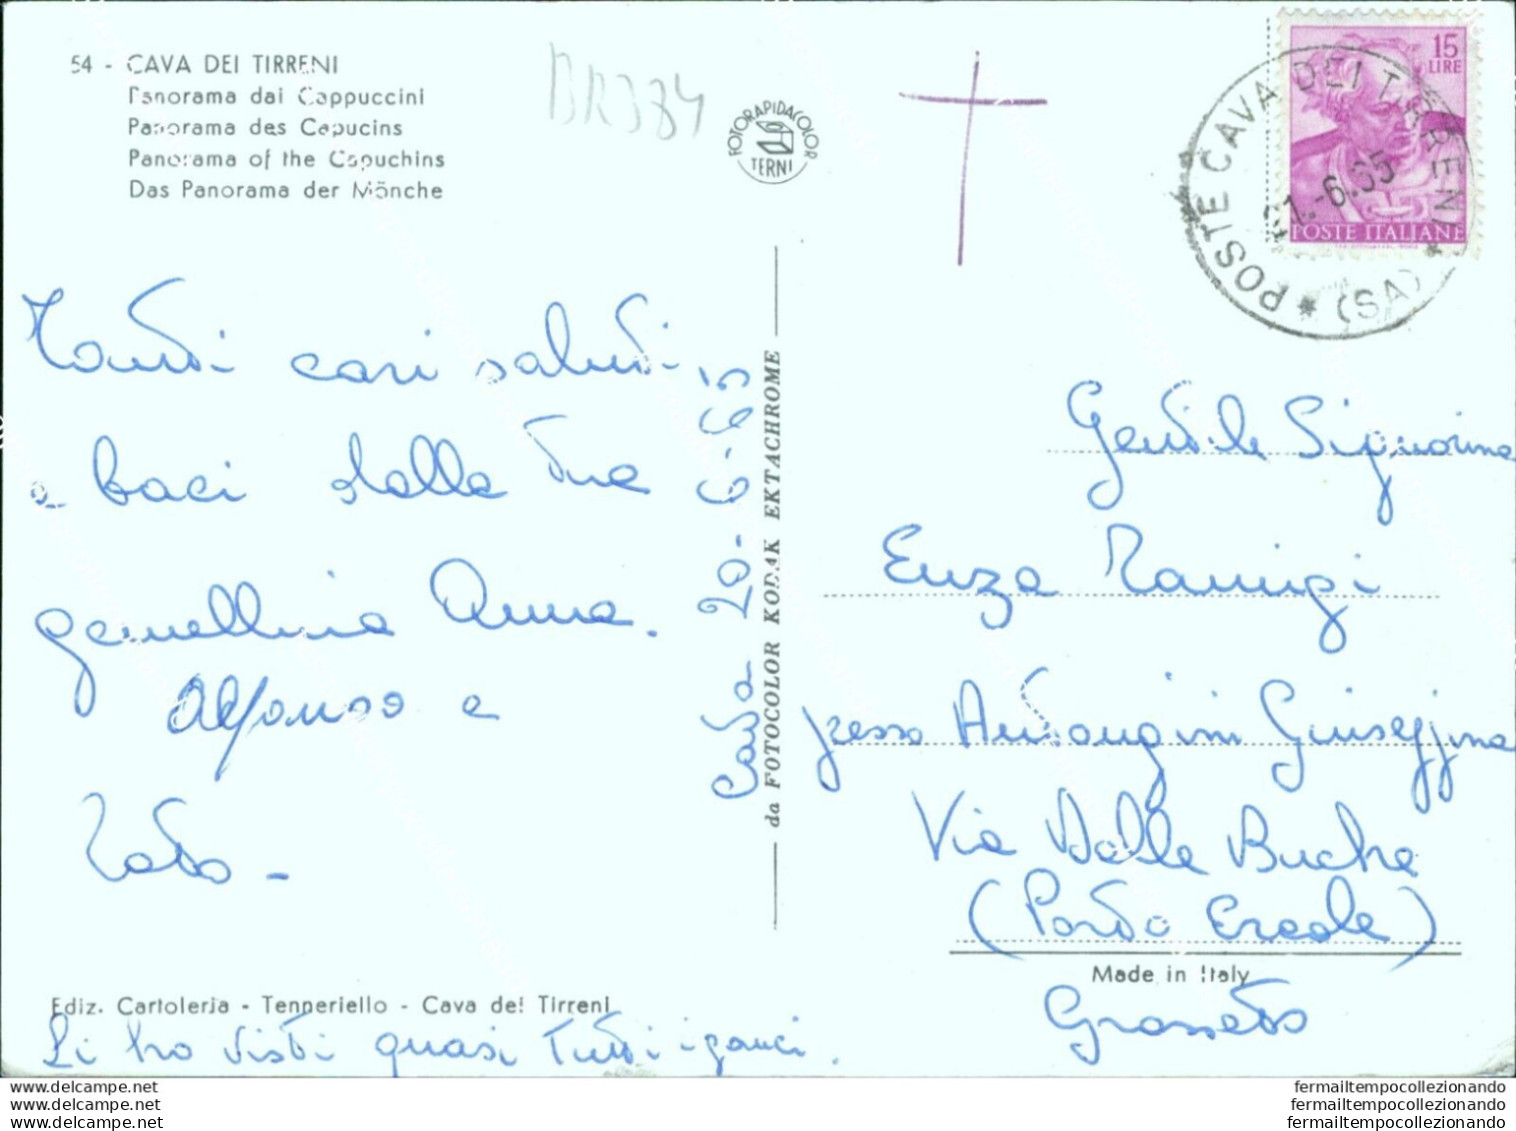 54 - CAVA DEI TIRRENI
Panorama dai Cappuccini
Panorama des Capucins
Panorama of the Capuchins
Das Panorama der Mönche
BR384
FOTORAPIDACOLOR
TERNI
15
LIRE
POSTE ITALIANE
POSTE CAVA DEI TIRRENI
(SA)
1.-6.65
Tanti cari saluti
e baci dalla tua
gemellina Anna.
Alfonso e
Cava 20-6-65
da FOTOCOLOR KODAK EKTACHROME
Gentile Signorina
Enza
presso Giuseppina
Via Delle Buche
(Porto Ercole)
Made in Italy
Grosseto
Ediz. Cartoleria - Tenneriello - Cava dei Tirreni
Li ho visti quasi tutti i ganci.
delcampe.net
delcampe.net
delcampe.net
fermailtempocollezionando
fermailtempocollezionando
fermailtempocollezionando